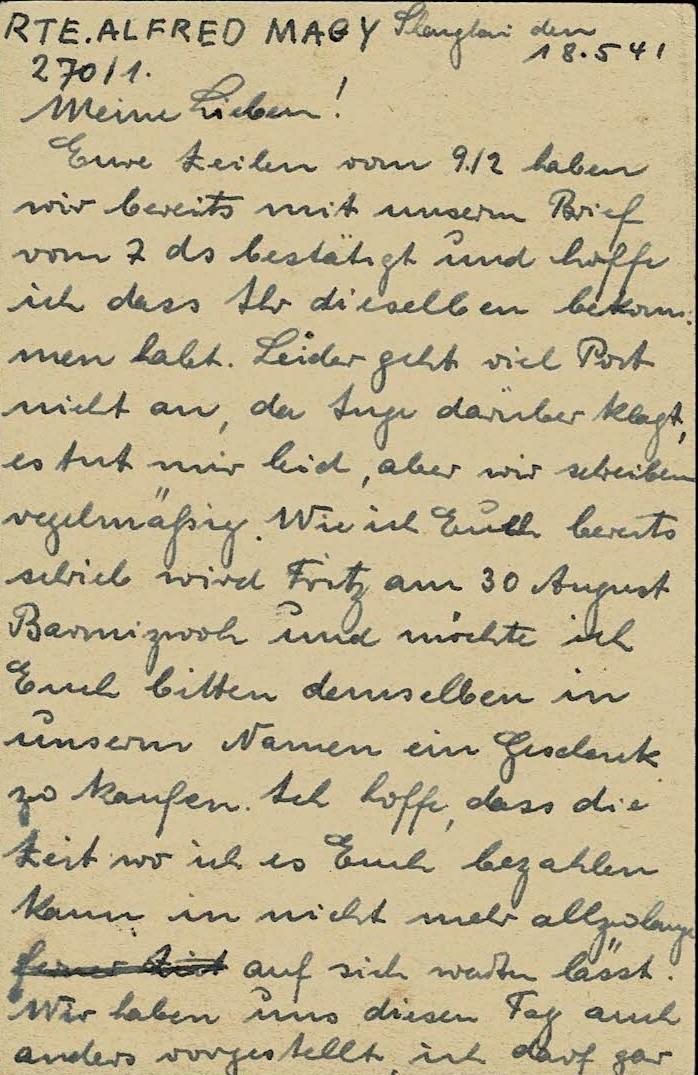 RTE. ALFRED MAGY Shanghai den
270/1. 18.5 41
Meine Lieben!
Eure Zeilen vom 9./2 haben
wir bereits mit unserm Brief
vom 7 ds bestätigt und hoffe
ich dass Ihr dieselben bekom-
men habt. Leider geht viel Post
nicht an, da Inge darüber klagt,
es tut mir leid, aber wir schreiben
regelmäßig. Wie ich Euch bereits
schrieb wird Fritz am 30 August
Barmizwoh und möchte ich
Euch bitten demselben in
unserm Namen ein Geschenk
zu kaufen. Ich hoffe, dass die
Zeit wo ich es Euch bezahlen
kann in nicht mehr allzulange
ferner Zeit auf sich warten lässt.
Wir haben uns diesen Tag auch
anders vorgestellt, ich darf gar